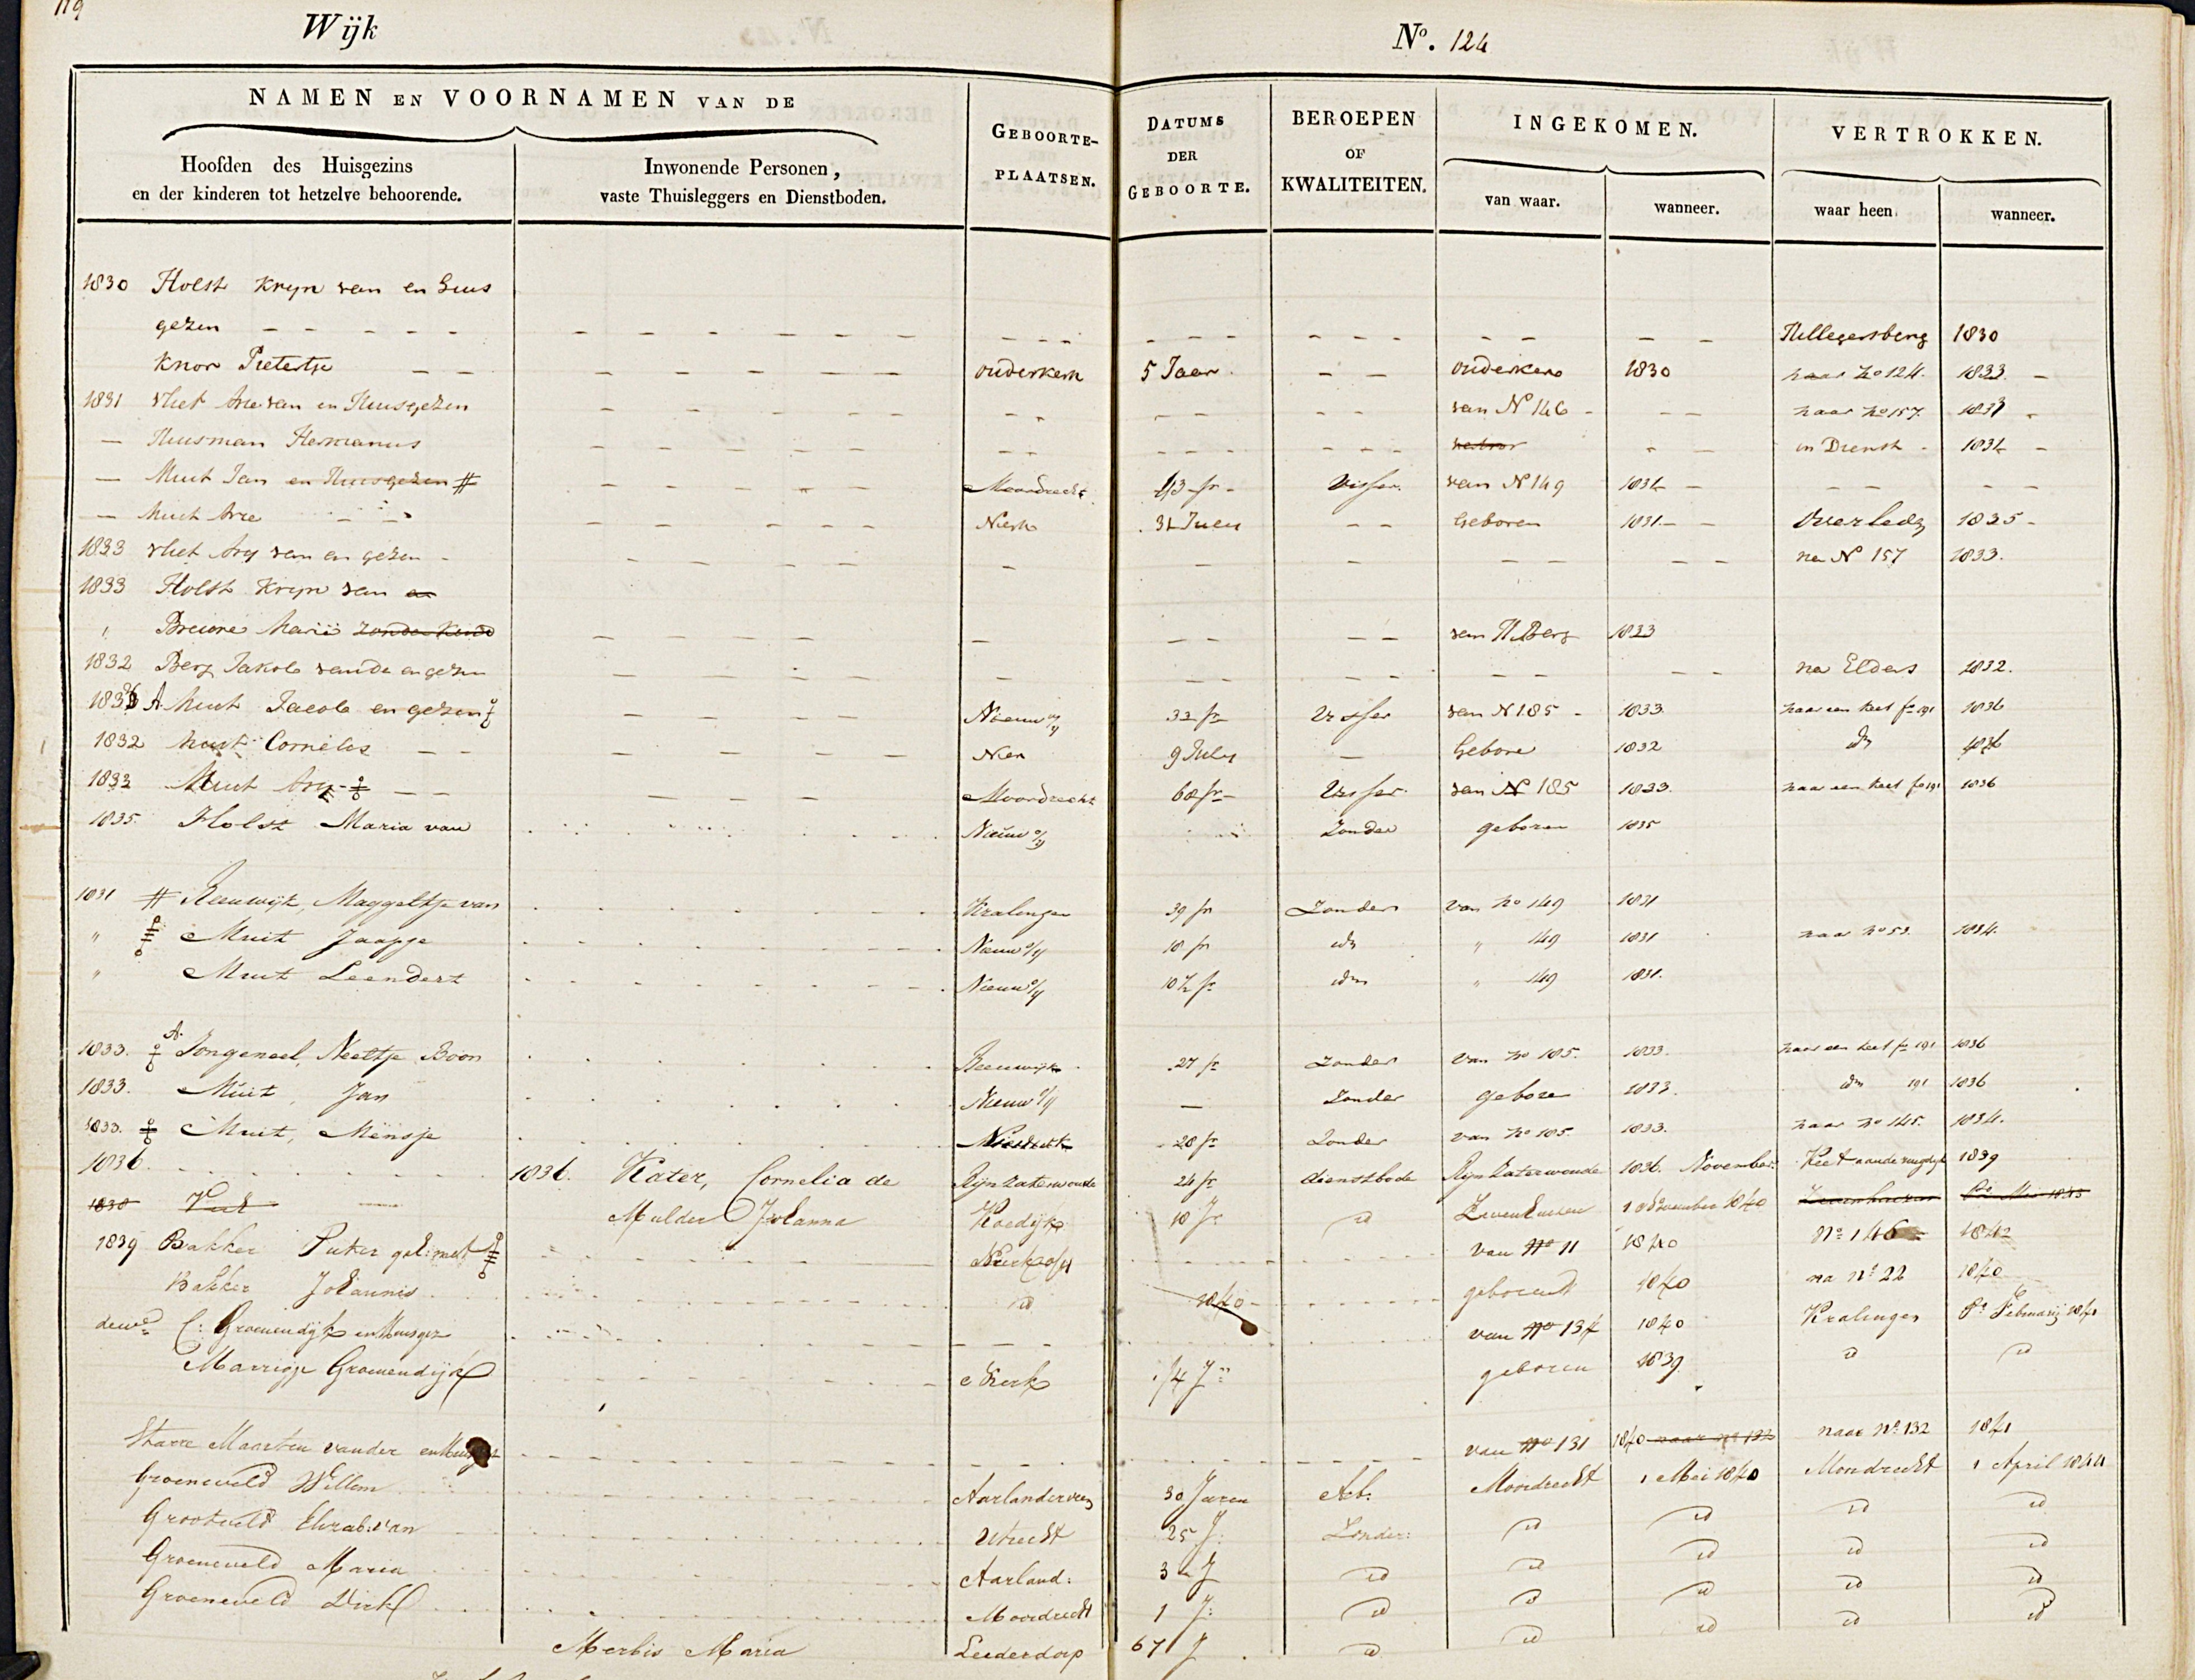 119
Wijk
No. 124
NAMEN EN VOORNAMEN VAN DE
Hoofden des Huisgezins en der kinderen tot hetzelve behoorende.
Inwonende Personen, vaste Thuisleggers en Dienstboden.
GEBOORTE-PLAATSEN.
DATUMS DER GEBOORTE.
BEROEPEN OF KWALITEITEN.
INGEKOMEN.
van waar.
wanneer.
VERTROKKEN.
waar heen.
wanneer.
1830 Holst Kryn van en Huis
gezin Hillegersberg 1830
Knor Pietertje ouderkerk 5 Jaar ouderkerk 1830 naar No 124. 1833
1831 vliet Arie van en Huisgezen van N 146 naar No 157. 1831
Huisman Hermanus in Dienst 1831
Muit Jan en Huisgezen # Moordrecht 43 jr Visser van N 149 1831
Muit Arie Nierk 31 Julij Geboren 1831 Overleden 1835
1833 vliet Ary van en gezen na N 157 1833.
1833 Holst Kryn van en
Breure Marie zonder kind van H Berg 1833
1832 Berg Jakob van de en gezen na Elders 1832.
1836 A Muit Jacob en gezen Nieuw o/y 33 jr Visser van N 185 1833 naar een keet fo 191 1836
1832 Muit Cornelis Nier 9 July Gebore 1832 do 1836
1833 Muit Ary Moordrecht 60 jr Visser van N 185 1833. naar een keet fo 191 1836
1835. Holst Maria van Nieuw o/y Zonder geboren 1835
1831 # Reeuwijk, Maggeltje van Kralingen 39 jr Zonder van No 149 1831
" Muit Jaapje Nieuw o/y 18 jr idm " 149 1831 naar No 53. 1834.
" Muit Leendert Nieuw o/y 10½ jr idm " 149 1831.
1833. A. Jongeneel, Neeltje Boon Reeuwijk 27 jr Zonder van No 185. 1833. naar een keet fo 191 1836
1833. Muit, Jan Nieuw o/y Zonder gebore 1833. idm 191 1836
1833. Muit, Mensje 20 jr Zonder van No 185. 1833. naar No 145. 1834.
1836. 1836. Kater, Cornelia de Rijnzaterwoude 24 jr dienstbode Rijnzaterwoude 1836. November. Keet aan de ringdijk 1839
1838 Mulder Johanna Koedijk 18 Jr id Zevenhuisen 1 November 1840 Zevenhuisen
1839 Bakker Pieter geh: met Nierk o/y van No 11 1840 No 146 1842
Bakker Johannis id 1840 geboren 1840 na No 22 1840
dewe C: Groenendijk en Huisgez van No 134 1840 Kralingen Februarij 1841
Marrigje Groenendijk Nierk ¼ Jr geboren 1839 id id
Starre Maarten van der en Huisgez van No 131 1840 naar No 132 naar No. 132 1841
Groeneveld Willem Aarlanderveen 30 Jaren Arb: Moordrecht 1 Mei 1840 Mordrecht 1 April 1844
Grootveld Elizab: van Utrecht 25 J: Zonder: id id id id
Groeneveld Maria Aarland: 3 J id id id id id
Groeneveld Dirk Moordrecht 1 J: id id id id id
Merbis Maria Leiderdorp 67 J id id id id id